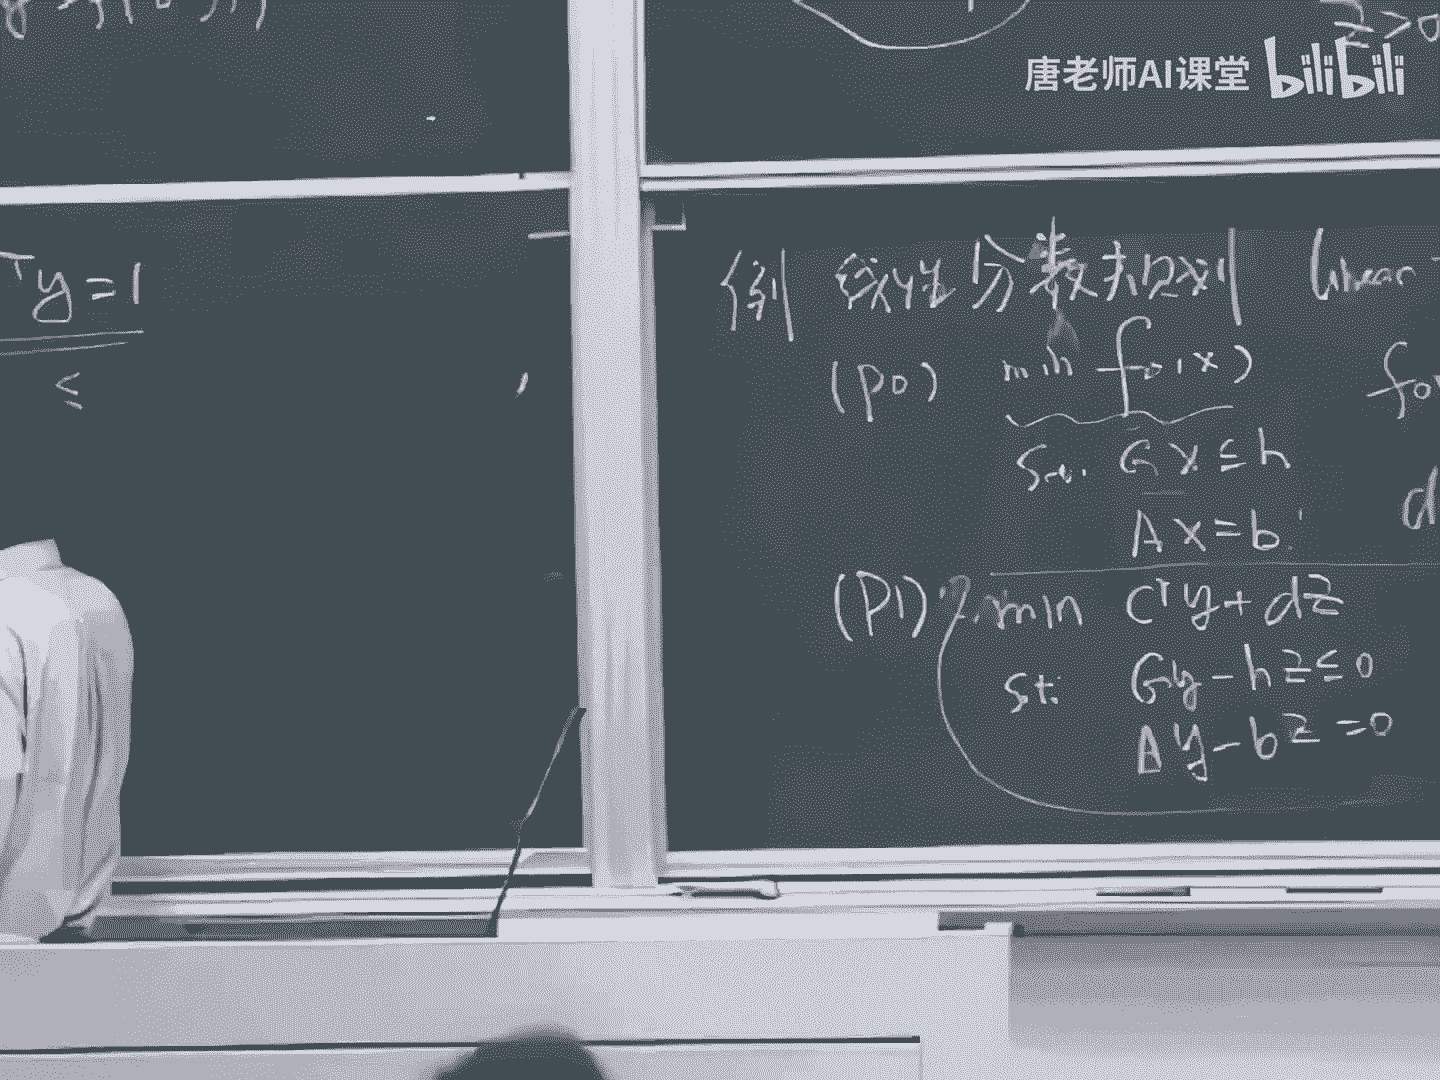 z>0
唐老师AI课堂 bilibili
ᵀy=1
≤
例 线性分数规划 linear-
(P0) min f₀(x) f₀
s.t. Gx≤h
Ax=b d
(P1) min cᵀy+dz
s.t. Gy-hz≤0
Ay-bz=0